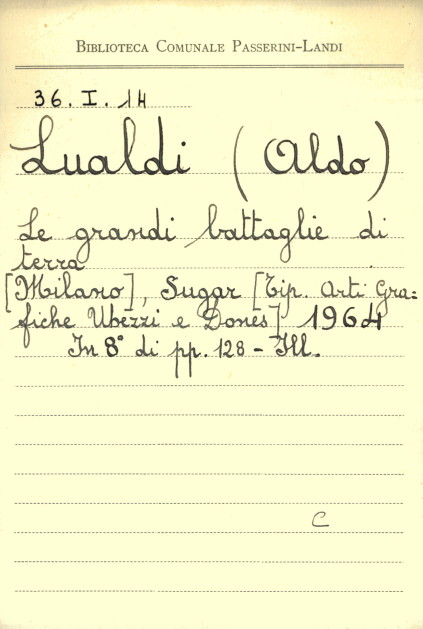 BIBLIOTECA COMUNALE PASSERINI-LANDI
36. I. 14
Lualdi (Aldo)
Le grandi battaglie di
terra
[Milano], Sugar [Tip. Arti Gra=
fiche Ubezzi e Dones] 1964
In 8° di pp. 128 - Ill.
C